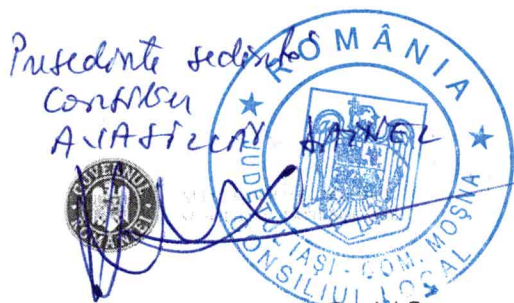 Președinte ședință
Consilier
ROMÂNIA
JUDEȚUL IAȘI - COM. MOȘNA
CONSILIUL LOCAL
GUVERNUL ROMÂNIEI